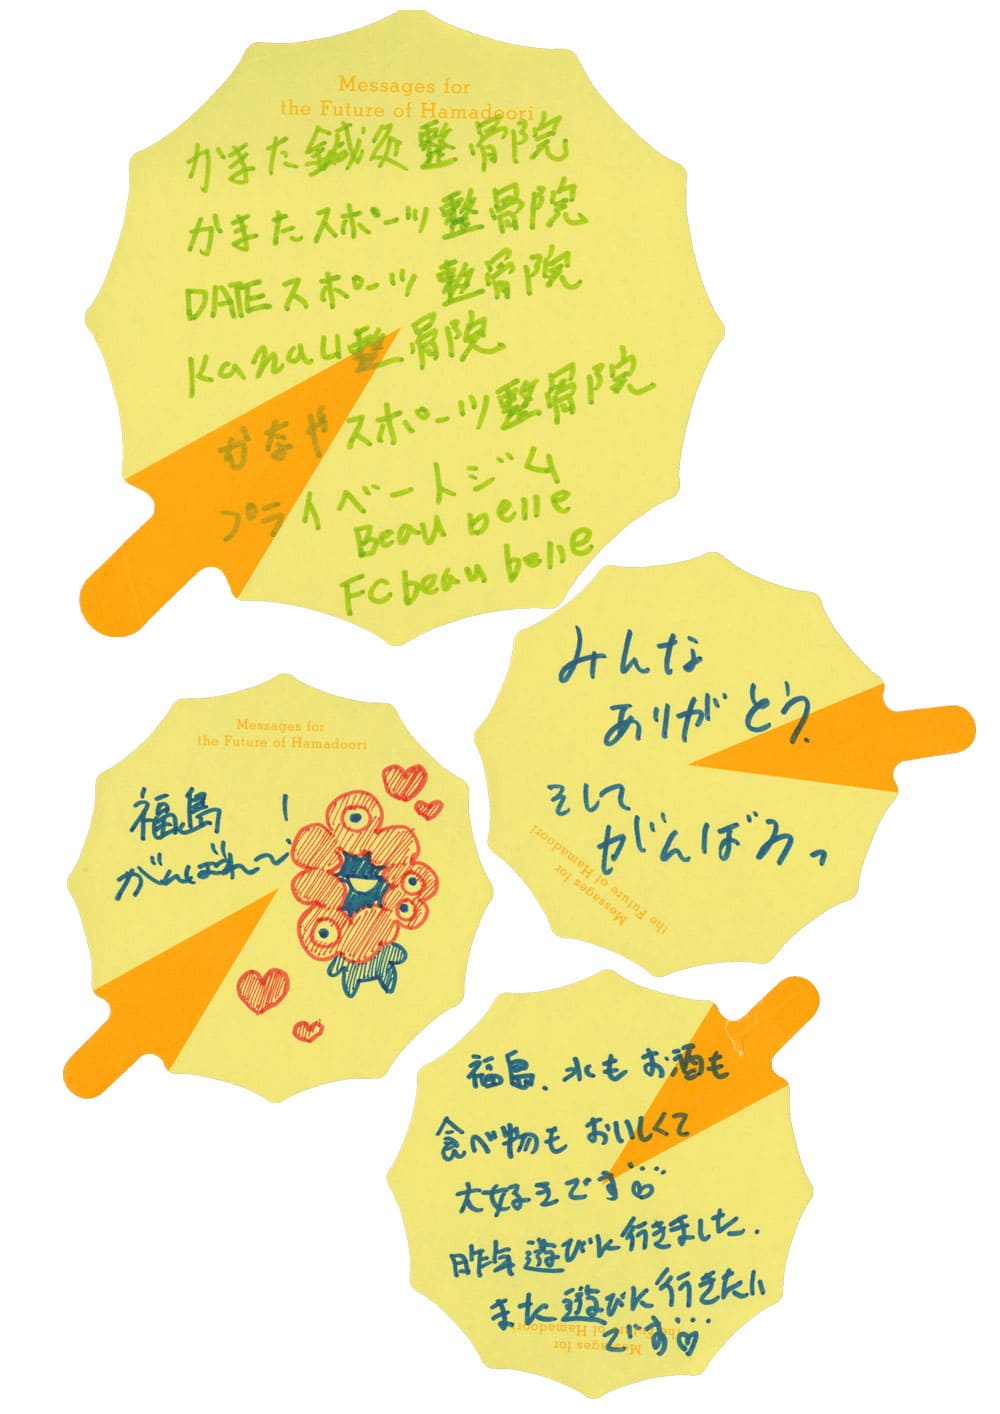 Messages for
the Future of Hamadoori
かまた鍼灸整骨院
かまたスポーツ整骨院
DATEスポーツ整骨院
Kanau整骨院
かなやスポーツ整骨院
プライベートジム
Beau belle
FC beau belle
みんな
ありがとう、
そして
がんばろっ
Messages for
the Future of Hamadoori
Messages for
the Future of Hamadoori
福島！
がんばれ〜！
福島、水もお酒も
食べ物もおいしくて
大好きです♡
昨年遊びに行きました.
また遊びに行きたい
です♡
Messages for
the Future of Hamadoori